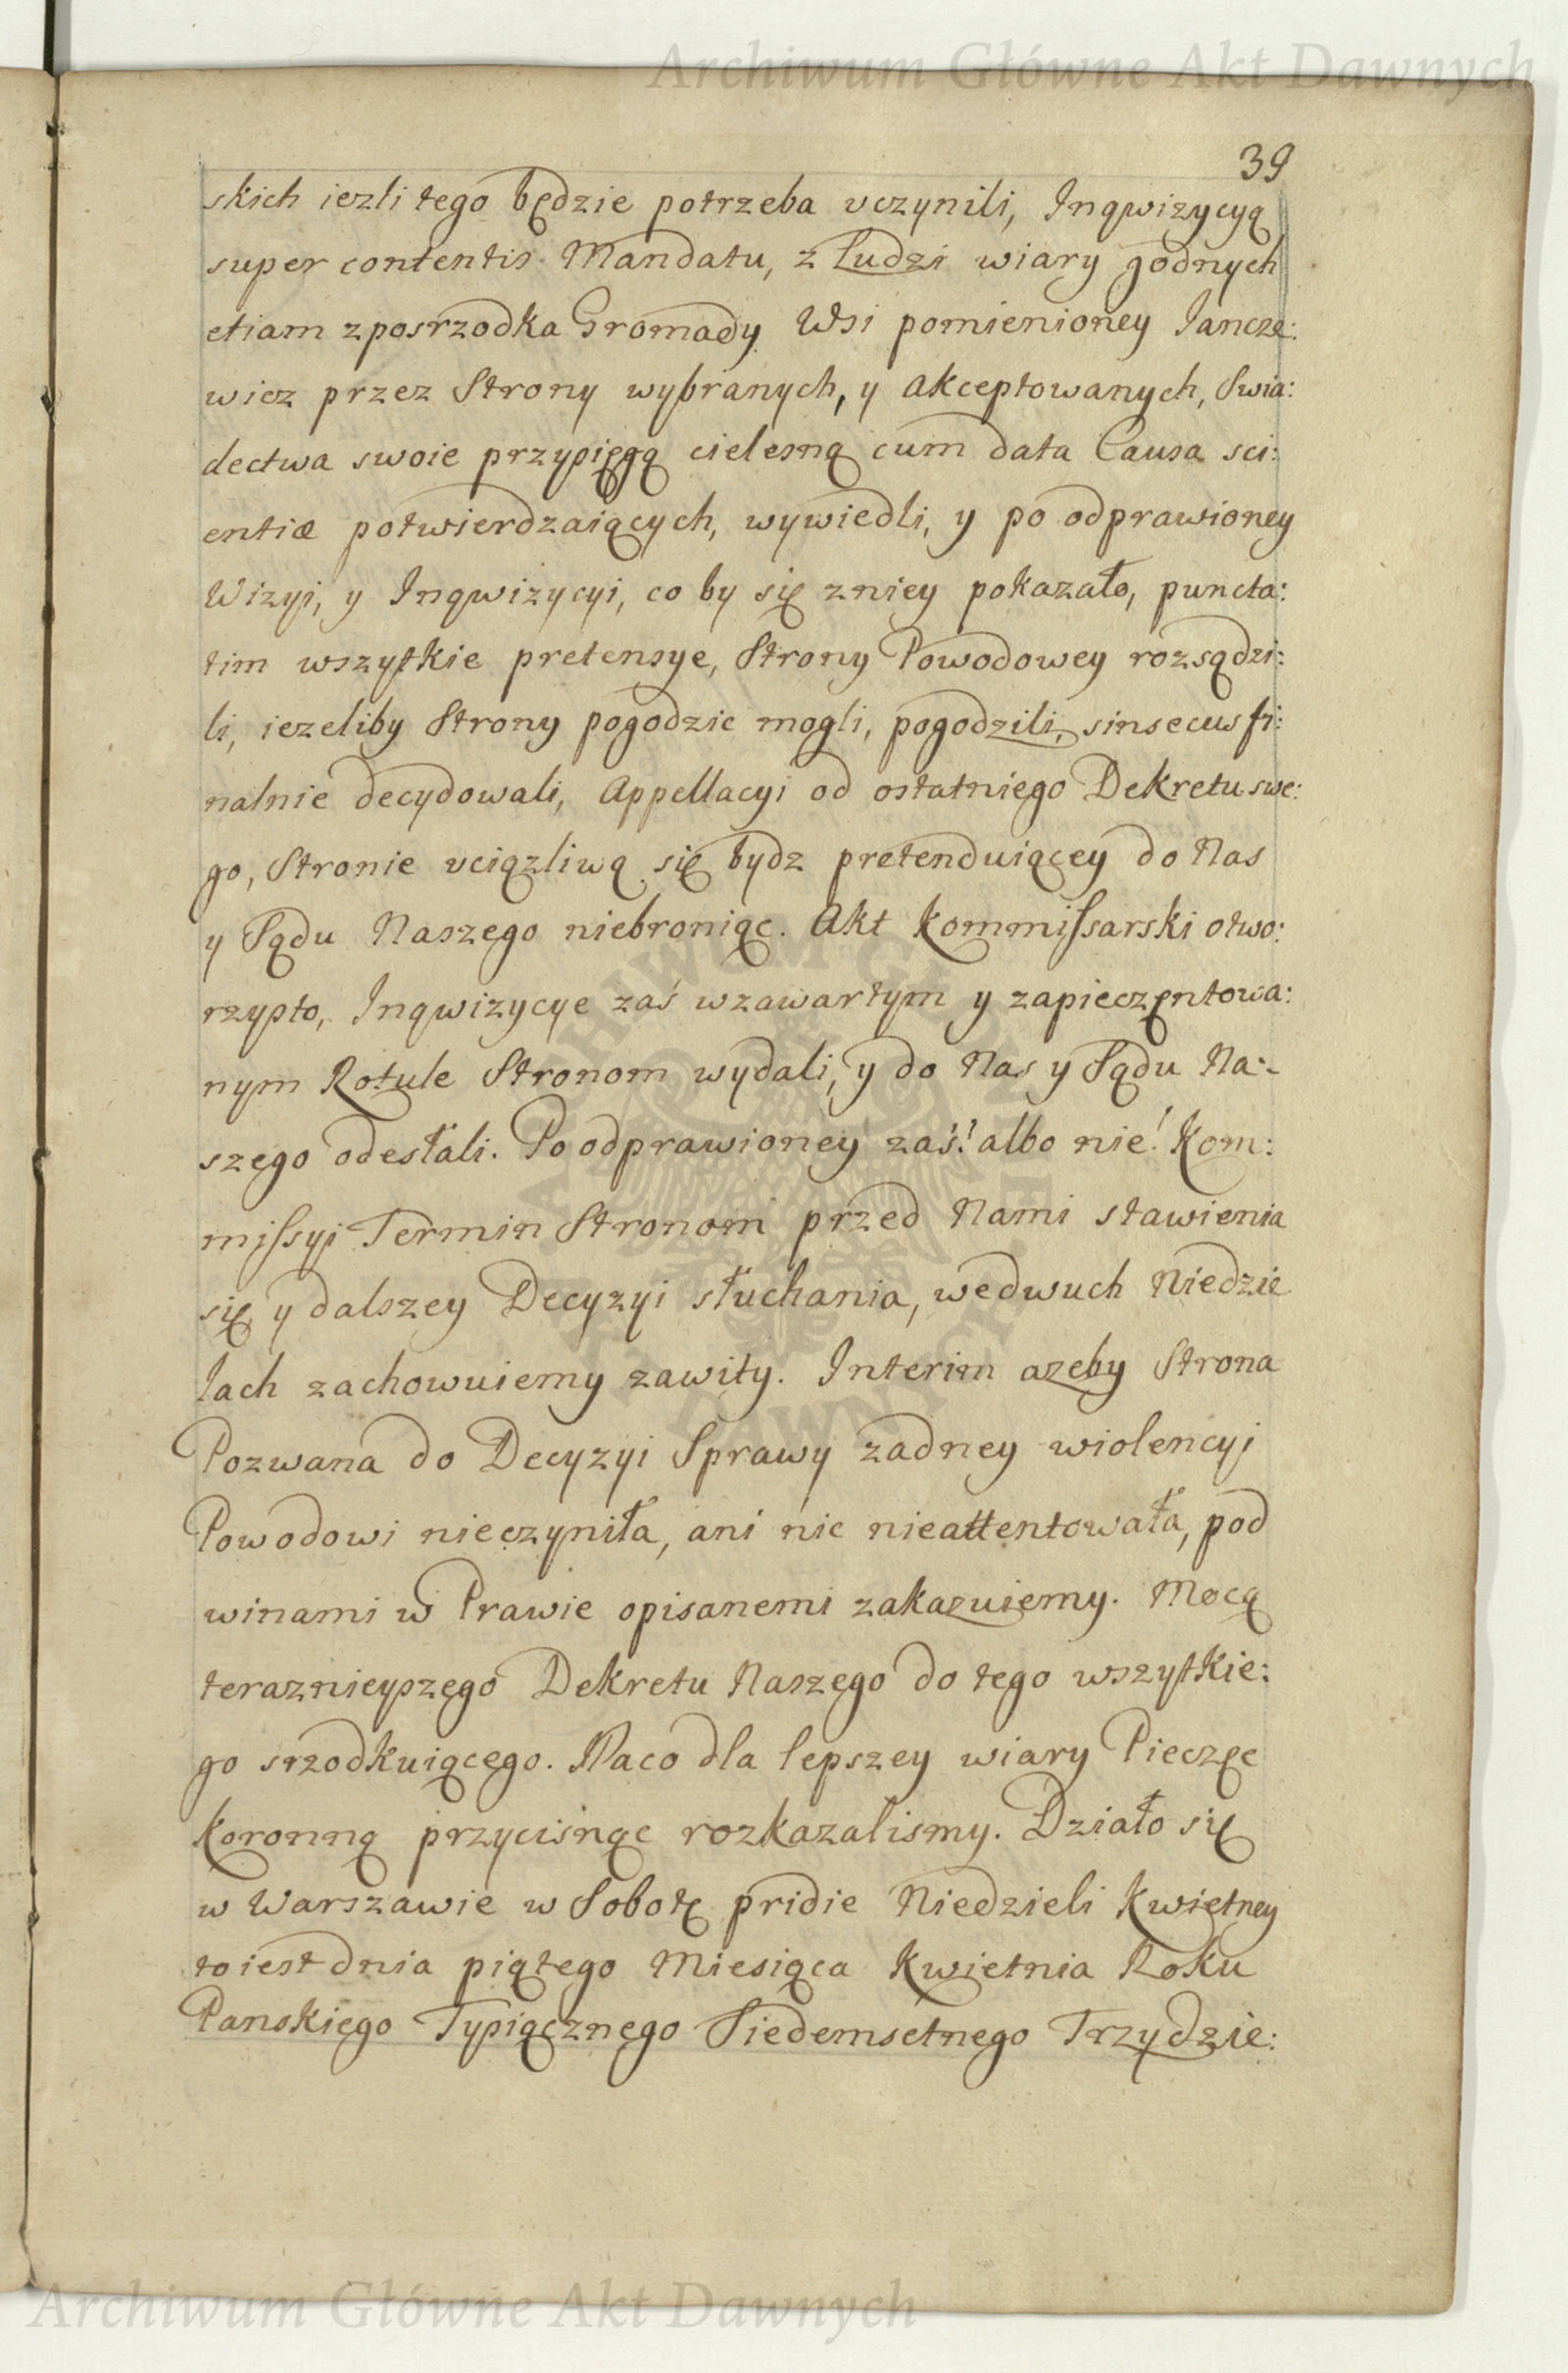 Archiwum Główne Akt Dawnych
39
skich iezli tego będzie potrzeba vczynili, Inqwizycyą
super contentis Mandatu, z Ludzi wiary godnych
etiam zposrzodka Gromady Wsi pomienioney Iancze:
wicz przez Strony wybranych, y akceptowanych, Swia:
dectwa swoie przysięgą cielesną cum data Causa sci:
entiæ potwierdzaiących, wywiedli, y po odprawioney
Wizyi, y Inqwizycyi, co by się zniey pokazało, puncta:
tim wszystkie pretensye, Strony Powodowey rozsądzi:
li, iezeliby Strony pogodzic mogli, pogodzili, sinsecus fi:
nalnie decydowali, Appellacyi od ostatniego Dekretu swe:
go, Stronie vciązliwą się bydz pretenduiącey do Nas
y Sądu Naszego niebroniąc. Akt Kommissarski otwo:
rzysto, Inqwizycye zaś wzawartym y zapieczęntowa:
nym Rotule Stronom wydali, y do Nas y Sądu Na:
szego odesłali. Po odprawioney zaś! albo nie! Kom:
missyi Termin Stronom przed Nami stawienia
się, y dalszey Decyzyi słuchania, wedwuch Niedzie
lach zachowuiemy zawity. Interim azeby Strona
Pozwana do Decyzyi Sprawy zadney wiolencyi
Powodowi nieczyniła, ani nic nieattentowała, pod
winami w Prawie opisanemi zakazuiemy. Mocą
teraznieyszego Dekretu Naszego do tego wszystkie:
go srzodkuiącego. Naco dla lepszey wiary Pieczęc
Koronną przycisnąc rozkazalismy. Działo się
w Warszawie w Sobotę pridie Niedzieli Kwietney
to iest dnia piątego Miesiąca Kwietnia Roku
Panskiego Tysiącznego Siedemsetnego Trzydzie:
Archiwum Główne Akt Dawnych